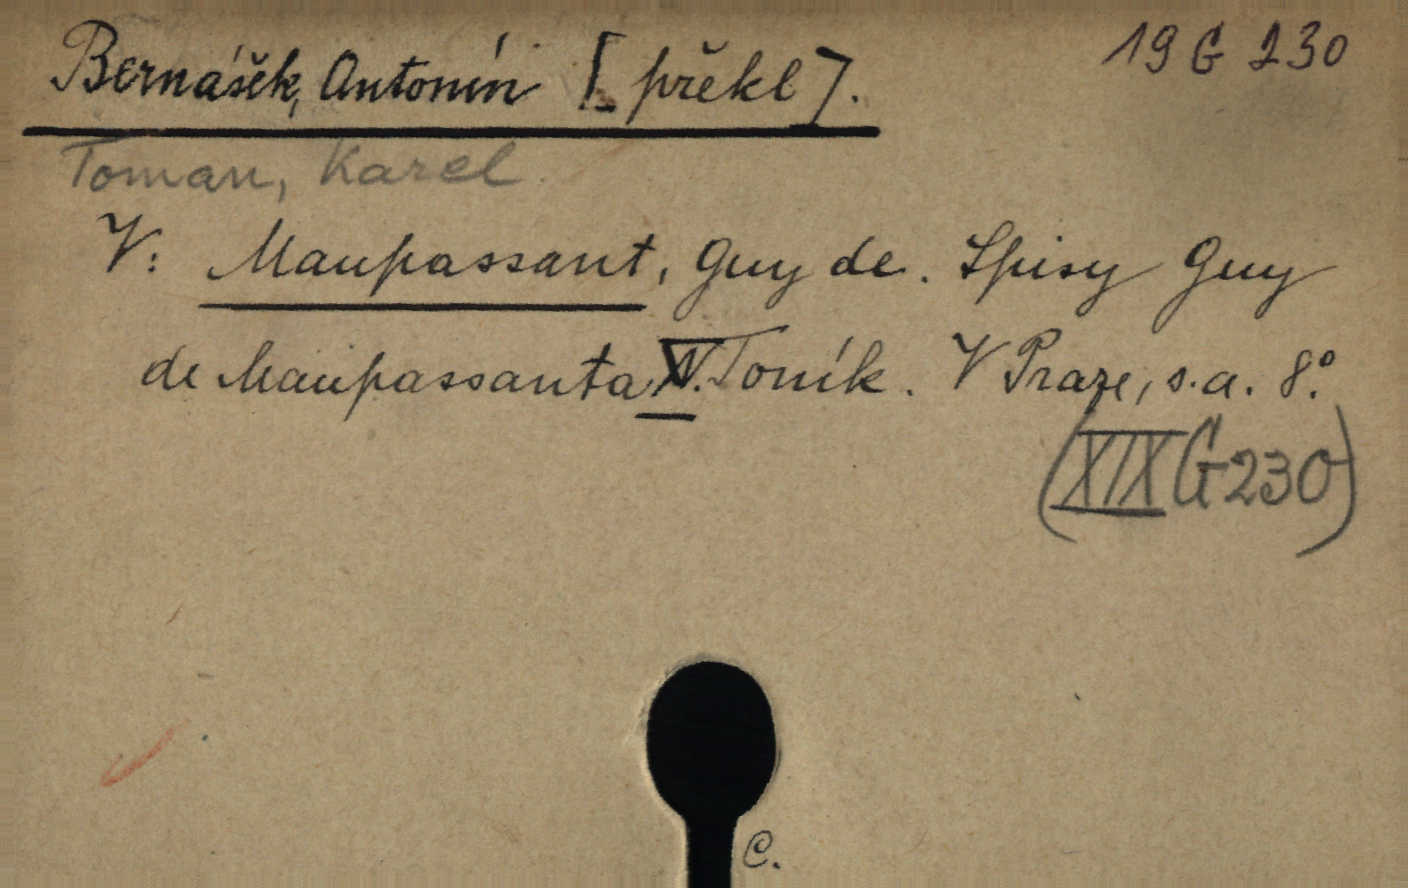 19 G 230
Bernášek, Antonín [překl].
Toman, Karel.
V: Maupassant, Guy de. Spisy Guy
de Maupassanta IV. Toník. V Praze, s.a. 8°.
(XIX G 230)
C.